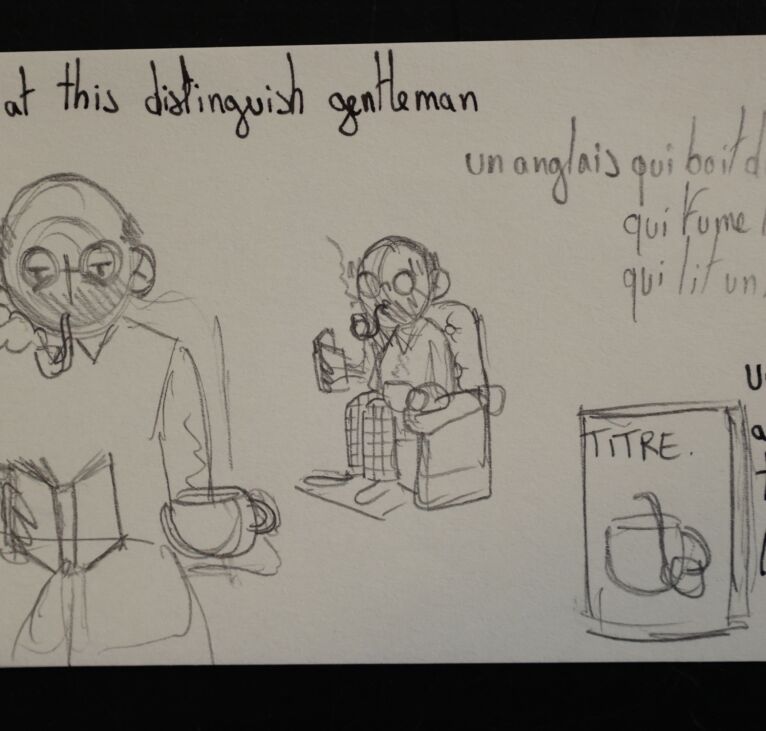 at this distinguish gentleman
un anglais qui boit d
qui fume
qui lit un
TITRE.